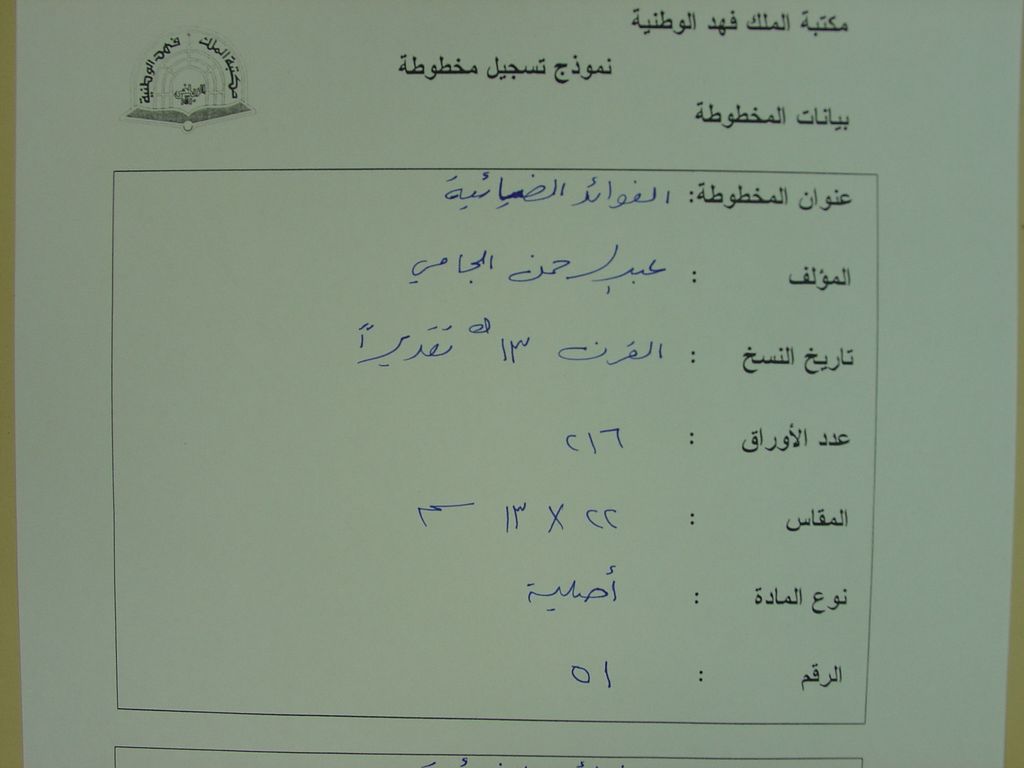 مكتبة الملك فهد الوطنية
نموذج تسجيل مخطوطة
بيانات المخطوطة
مكتبة الملك فهد الوطنية
عنوان المخطوطة: الفوائد الضيائية
المؤلف : عبدالرحمن الجامي
تاريخ النسخ : القرن ١٣ هـ تقديراً
عدد الأوراق : ٢١٦
المقاس : ٢٢ X ١٣ سم
نوع المادة : أصلية
الرقم : ٥١